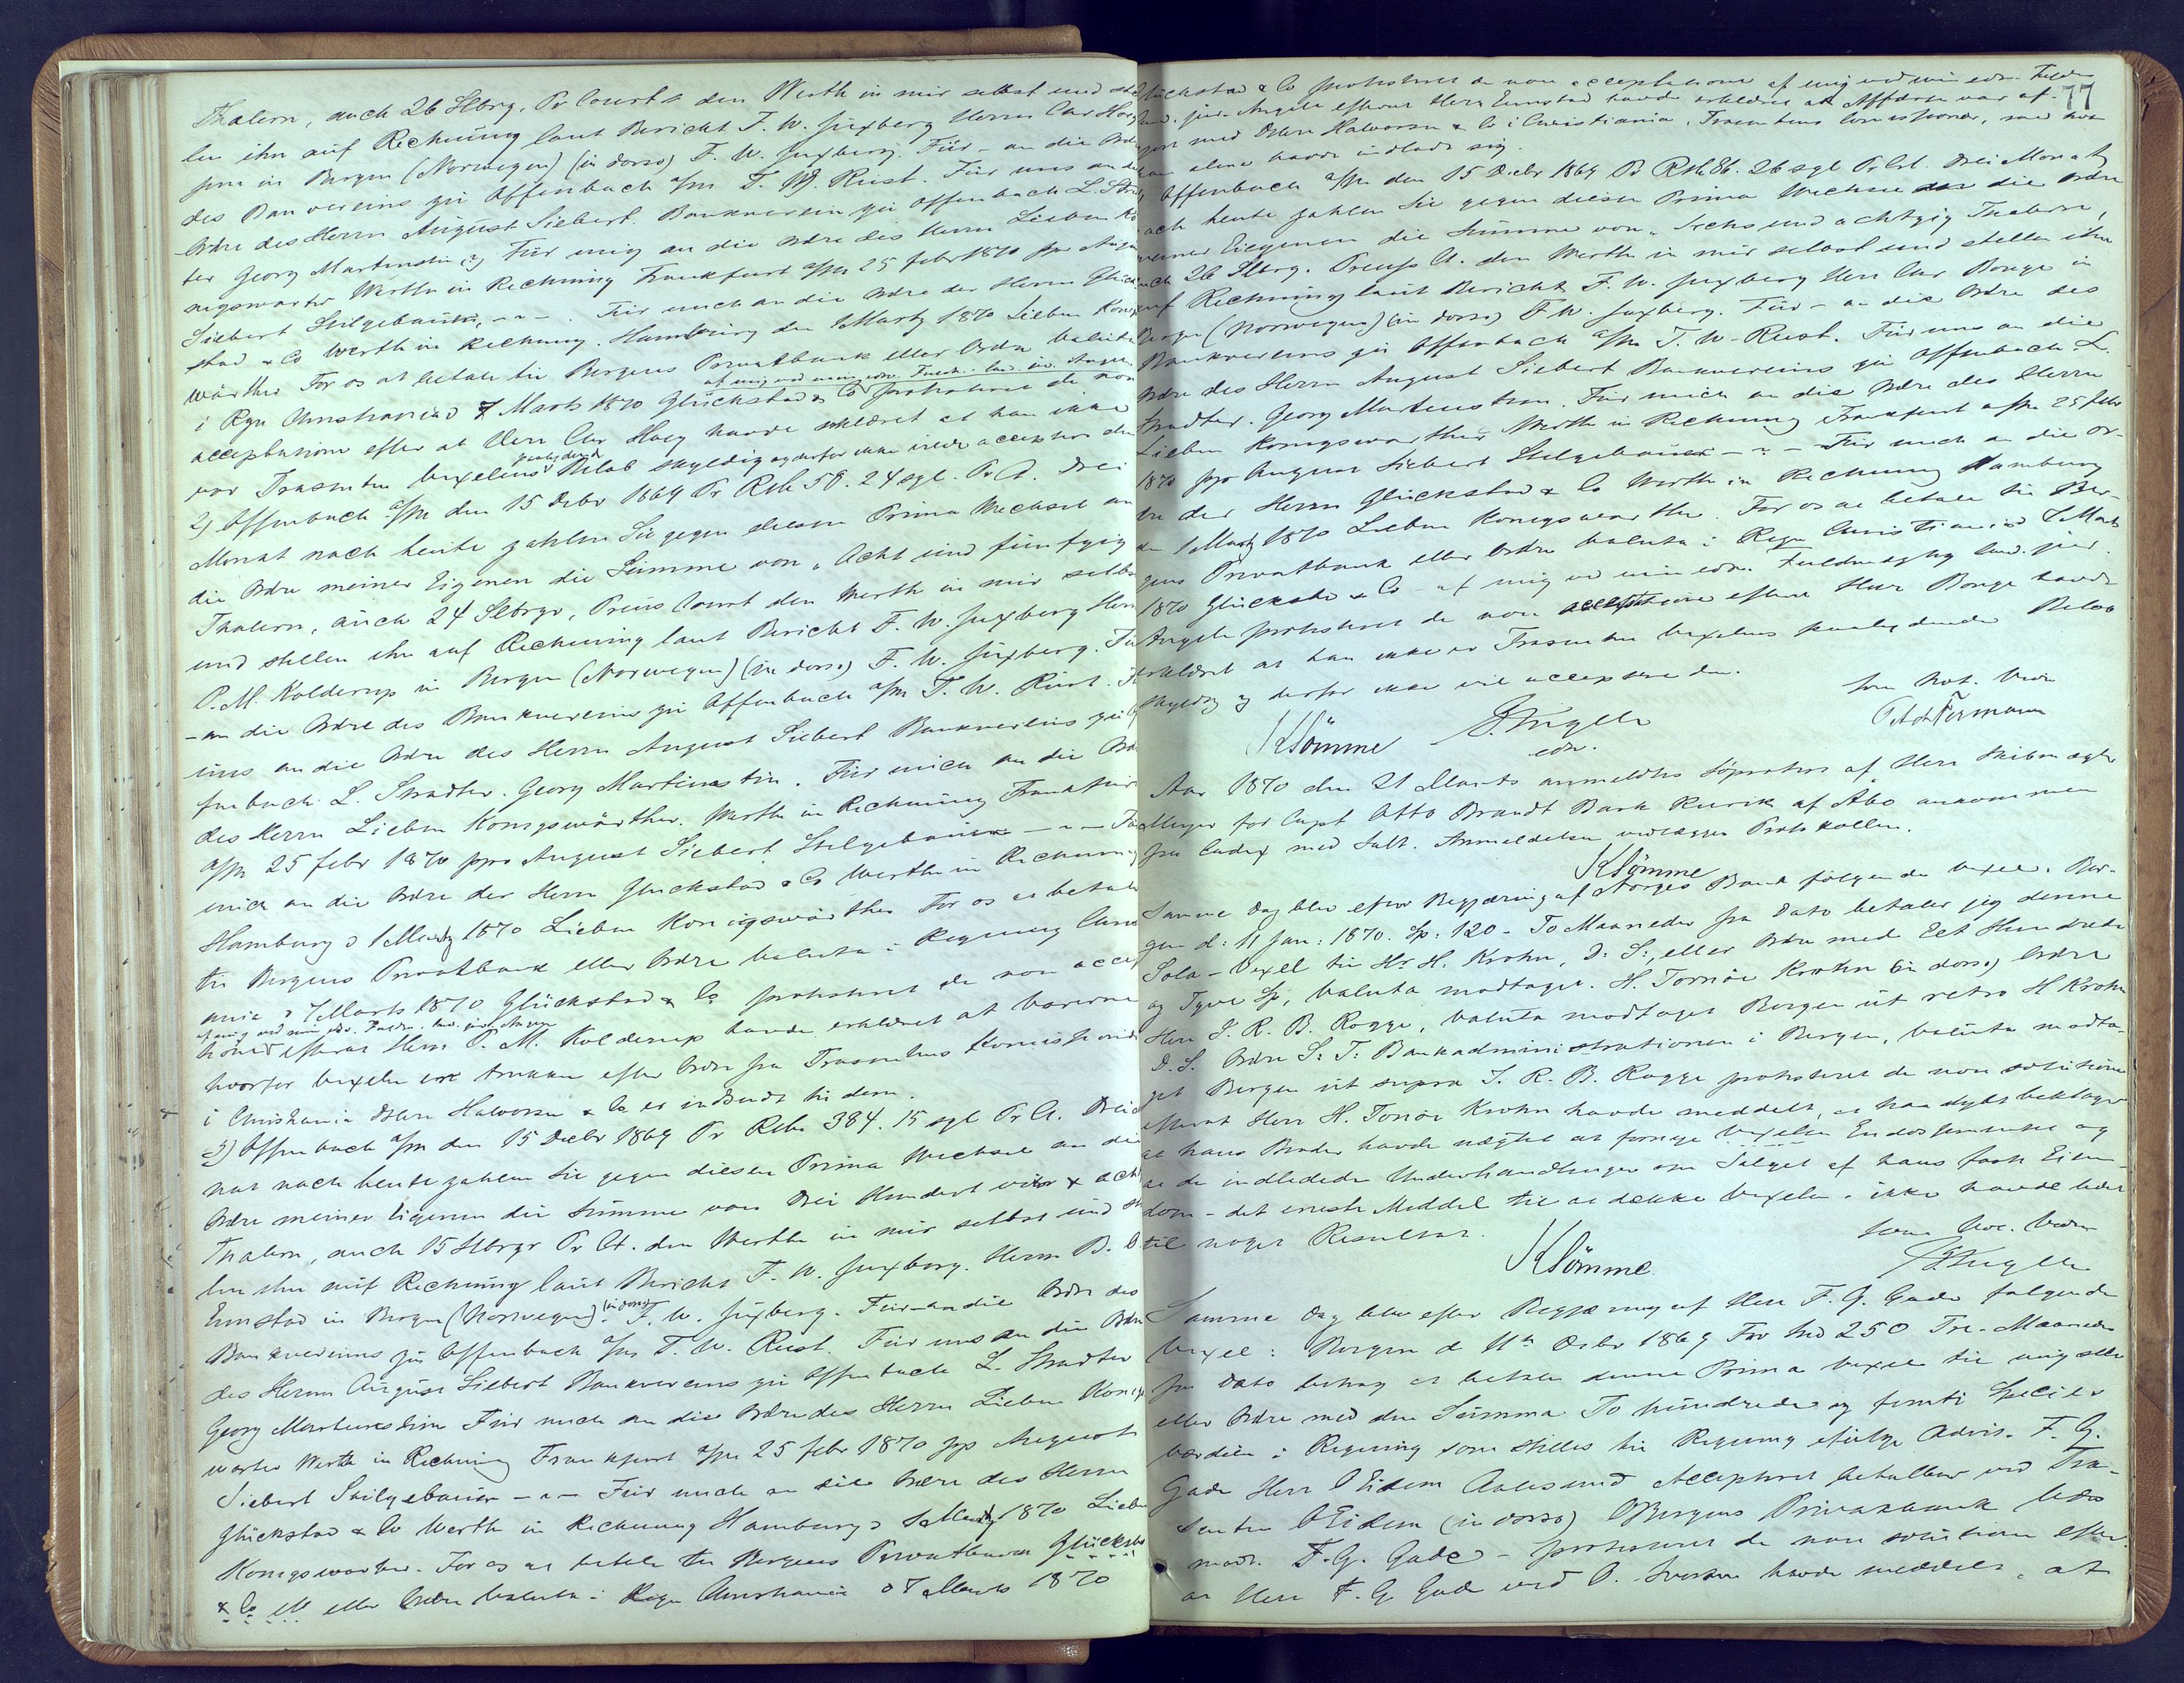 Thalern, auch 26 Slbrg. Pr Courts den Werth in mir selbst und stel
len ihn auf Rechnung laut Bericht F. W. Juxberg Herrn Chr Hoeg
jun in Bergen (Norwegen) (in dorso) F. W. Juxberg. Für - an die Ordre
des Bankvereins zu Offenbach a/m F. W. Rust. Für uns an die
Ordre des Herrn August Siebert Bankverein zu Offenbach L. Stra
ter Georg Martenstein Für mig an die Ordre des Herrn Lieben Kö
nigswarter Werth in Rechnung Frankfurt a/m 25 febr 1870 ppr August
Siebert Stilgebauer, - " - . Für mich an die Ordre der Herrn Glück
stad & Co Werth in Rechnung. Hamburg den 1 Martz 1870 Lieben Konigs
wärther For os at betale til Bergens Privatbank eller Ordre valuta
af mig ved min edsv. Fuldm. cand. jur. Angell
i Regn Christiania d 7 Marts 1870 Glückstad & Co protesteret de non
acceptatione efter at Herr Chr Hoeg havde erklæret at han ikke
paalydende
var Trasenten Vexelens Beløb skyldig og derfor ikke vilde acceptere den
2) Offenbach a/m den 15 Decbr 1869 Pr Rth 58. 24 sgl. Pr Ct. Drei
Monat nach heute zahlen Sie gegen diesen Prima Wechsel an
die Ordre meiner Eigenen die Summe von " Acht und funfzig
Thalern, auch 24 Slbrgr, Preus Court den Werth in mir selbst
und stellen ihn auf Rechnung laut Bericht F. W. Juxberg Herrn
P. M. Kolderup in Bergen (Norwegen) (in dorso) F. W. Juxberg. Für
- an die Ordre des Bankvereins zu Offenbach a/m F. W. Rust. Für
uns an die Ordre des Herrn August Siebert Bankvereins zu Of
fenbach L. Stradter. Georg Martenstein. Für mich an die Ordre
des Herrn Lieben Konigswärther. Werth in Rechnung Frankfurt
a/m 25 febr 1870 ppr August Siebert Stilgebauer - " - Für
mich an die Ordre der Herrn Glückstad & Co Werth in Rechnung
Hamburg d 1 Martz 1870 Lieben Konigswärther For os at betale
til Bergens Privatbank eller Ordre valuta i Regning Christi
ania d 7 Marts 1870 Glückstad & Co protesteret de non accep
af mig ved min edsv. Fuldm. cand. jur. Angell
tione efterat Herr P. M. Kolderup havde erklæret at varerne
hvorfor Vexelen er trukken efter Ordre fra Trasentens Komissionær
i Christiania D'Herr Halvorsen & Co er indsendt til dem.
3) Offenbach a/m den 15 Decbr 1869 Pr Rth 384. 15 sgl Pr Ct. Drei
nat nach heute zahlen Sie gegen diesen Prima Wechsel an die
Ordre meiner Eigenen die Summe von Drei Hundert vier & acht
Thalern, auch 15 Slbrgr Pr Ct. den Werth in mir selbst und st
len ihn auf Rechnung laut Bericht F. W. Juxberg. Herrn B. C
Ernstad in Bergen (Norwegen) (in dorso) F. W. Juxberg. Für - an die Ordre des
Bankvereins zu Offenbach a/m F. W. Rust. Für uns an die Ordre
des Herrn August Siebert Bankvereins zu Offenbach L. Stradter
Georg Martenstein Für mich an die Ordre des Herrn Lieben Konigs
warter Werth in Rechnung Frankfurt a/m 25 febr 1870 pp August
Siebert Stilgebauer - " - Für mich an die Ordre des Herrn
Glückstad & Co Werth in Rechnung Hamburg d 1 Martz 1870 Lieben
Konigswarter. For os at betale til Bergens Privatbank Glückstad
& Co ell eller Ordre Valuta i Regn Christiania d 7 Marts 1870
77
Glückstad & Co protesteret de non acceptatione af mig ved min edsv. Fuldm
cand. jur. Angell efterat Herr Ernstad havde erklæret at Affæren var af
gjort med D'Herr Halvorsen & Co i Christiania, Trasentens Comissionær, med hvem
han alene havde indladt sig.
Offenbach a/m den 15 Decbr 1869 Pr Rth 86. 26 sgl Pr Crt. Drei Monat
nach heute zahlen Sie gegen diesen Prima Wechsel an die Ordre
meiner Eigenen die Summe von " Sechs und achtzig Thalern,
auch 26 Slbrg. Preuss Ct. den Werth in mir selbst und stellen ihn
auf Rechnung laut Bericht F. W. Juxberg Herr Chr Bonge in
Bergen (Norwegen) (in dorso) F. W. Juxberg. Für - an die Ordre des
Bankvereins zu Offenbach a/m F. W. Rust. Für uns an die
Ordre des Herrn August Siebert Bankvereins zu Offenbach L.
Stradter. Georg Martenstein. Für mich an die Ordre des Herrn
Lieben Konigswarther Werth in Rechnung Frankfurt a/m 25 febr
1870 ppr August Siebert Stilgebauer - " - Für mich an die Or-
dre der Herrn Glückstad & Co Werth in Rechnung Hamburg
den 1 Martz 1870 Lieben Konigswarther. For os at betale til Ber-
gens Privatbank eller Ordre valuta i Regn Christiania d 7 Marts
1870 Glückstad & Co - af mig ved min edsv. Fuldmægtig cand. jur.
Angell protesteret de non acceptatione efterat Herr Bonge havde
erklæret at han ikke er Trasenten Vexelens paalydende Beløb
skyldig og derfor ikke vil acceptere den.
som Not. Vidn
KSömme
Angell
edsv.
Aar 1870 den 21 Marts anmeldtes Söprotest af Herr Skibsmægler
Meyer for Capt Otto Brandt Bark Rurik af Abo ankommen
fra Cadix med Salt. Anmeldelsen vedlægges Protokollen.
KSömme
Samme Dag blev efter Begjæring af Norges Bank følgende Vexel. Ber-
gen d: 11 Jan: 1870. Sp: 120 - To Maaneder fra Dato betaler jeg denne
Sola-Vexel til Hr H. Krohn, D: S:, eller Ordre med Et Hundrede
og Tyve Sp, valuta modtaget. H. Tornöe Krohn (in dorso) Ordre
Herr J. R. B. Rogge, valuta modtaget Bergen ut retro H Krohn
D. S. Ordre S: T: Bankadministrationen i Bergen, valuta modta-
get Bergen ut supra J. R. B. Rogge protesteret de non solutione
efterat Herr H. Tornöe Krohn havde meddelt, at han dybt beklager
at hans Broder havde nægtet at fornye Vexelen Endossementet og
at de indledede Underhandlinger om Salget af hans faste Eien-
dom - det eneste Middel til at dække Vexelen. ikke havde ledet
til noget Resultat.
som Not. Vidn
KSömme
Angell
Samme Dag blev efter Begjæring af Herr F. G. Gade følgende
Vexel: Bergen d 11te Decbr 1869 For Spd 250 Tre Maaneder
fra Dato behag at betale denne Prima Vexel til mig selv
eller Ordre med den Summa To hundrede og femti Species
værdien i Regning som stilles til Regning efølge Advis. F. G.
Gade Herr O Eidem Aalesund Accepteret betalbar ved Tra-
senten O Eidem (in dorso) Bergens Privatbank Vdo
modt. F. G. Gade - protesteret de non solutione efter-
at Herr F. G. Gade ved havde meddelt, at